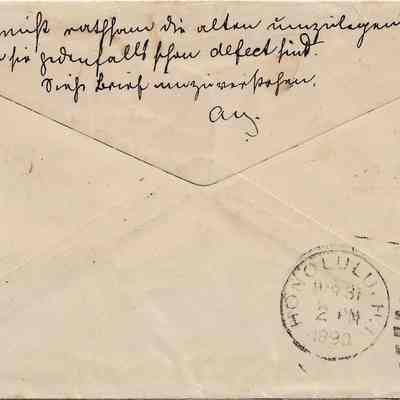 nicht rathsam die alten umzulegen
sie jedenfalls schon defect sind.
Siehe Brief
Aug.
HONOLULU. H.I.
31
2 PM
1890